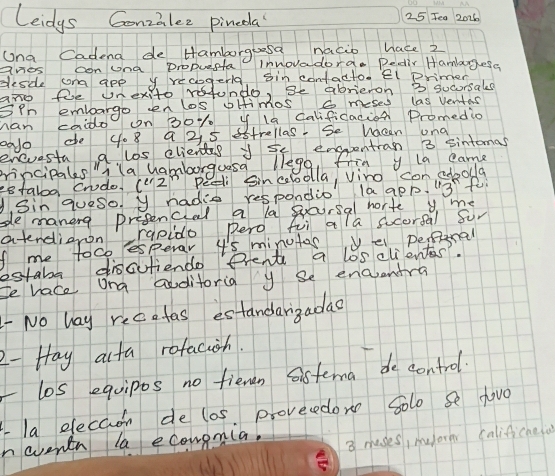 Leidys González pineda
25 Feb 2026
Una Cadena de Hamborguesa nacio hace 2
años con una Propuesta Innovadora. Pedir Hamburgesa
desde una app y recogerla sin contacto. El primer
año fue un exito rotundo, se abrieron 3 sucursales
Sin embargo en los ultimos 6 meses las ventas
han caido un 30% y la calificación Promedio
bajo de 4.8 a 2,5 estrellas. Se hacen una
encuesta a los clientes y se encuentran 3 sintomas
principales "1 la hamborguesa llego fria y la carne
estaba cruda. ("2" Pedi sin cebolla, vino con cebolla
y Sin queso. y nadie respondio la app. "3" fui
de manera presencial a la sucursal norte y me
atendieron rapido Pero fui a la sucorsal Sur
y me toco esperar 45 minutos y el personal
estaba discutiendo frente a los clientes.
Se hace una auditoria y se encuentra
1- No hay recetas estandarizadas
2- Hay alta rotación.
- los equipos no tienen Sistema de control.
- la elección de los proveedores Solo se tuvo
n cuenta la economia.
3 meses, mejorar